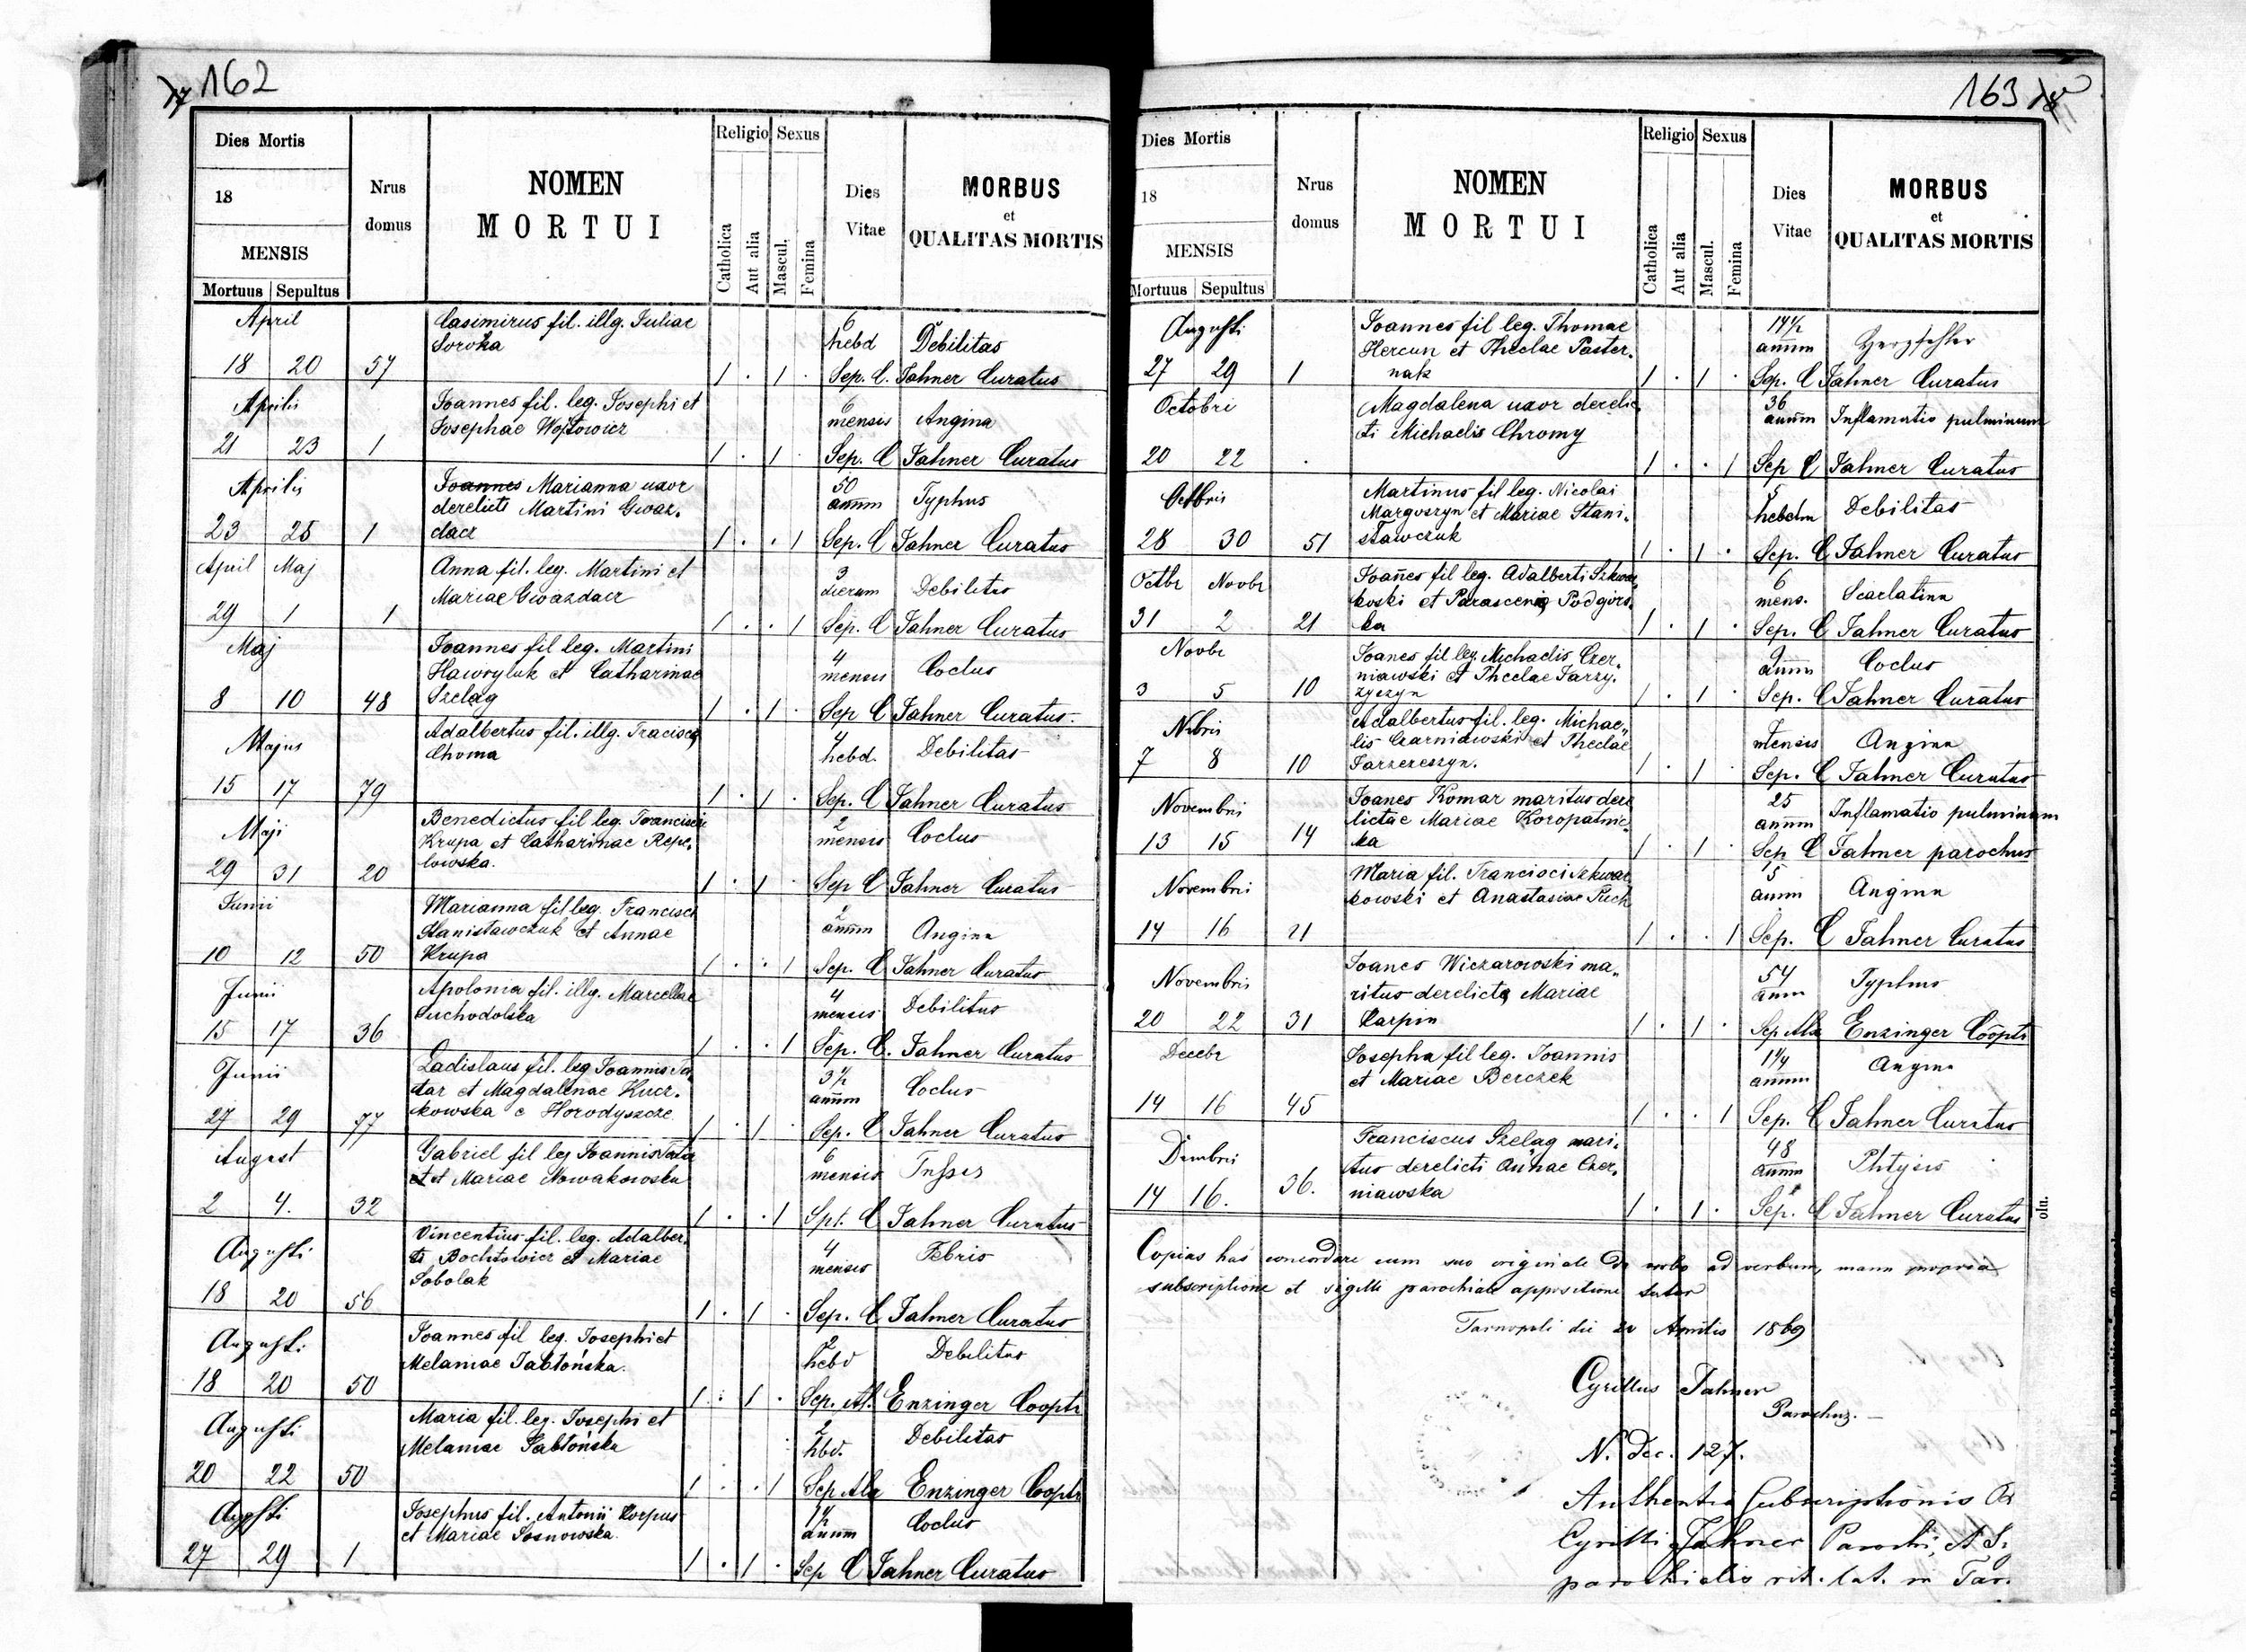 162
Dies Mortis
18
MENSIS
Mortuus Sepultus
Nrus domus
NOMEN MORTUI
Religio
Catholica
Aut alia
Sexus
Mascul.
Femina
Dies Vitae
MORBUS et QUALITAS MORTIS
April
Casimirus fil. illg. Juliae
Soroka
6 hebd Debilitas
18 20 57 1 . 1 . Sep. C. Jahner Curatus
Aprilis
Joannes fil. leg. Josephi et
Josephae Wojtowicz
6 mensis Angina
21 23 1 1 . 1 . Sep. C Jahner Curatus
Aprilis
Joannes Marianna uxor
derelicti Martini Gwaz-
dacz
50 annm Typhus
23 25 1 1 . . 1 Sep. C Jahner Curatus
April Maj
Anna fil. leg. Martini et
Mariae Gwazdacz
3 dierum Debilitas
29 1 1 1 . . 1 Sep. C Jahner Curatus
Maj
Joannes fil leg. Martini
Hawryluk et Catharinae
Szeląg
4 mensis Coclus
8 10 48 1 . 1 . Sep C Jahner Curatus.
Majus
Adalbertus fil. illg.
Choma
4 hebd. Debilitas
15 17 79 1 . 1 . Sep. C Jahner Curatus
Maji
Benedictus fil leg. Francisci
Krupa et Catharinae Repe-
lowska.
2 mensis Coclus
29 31 20 1 . 1 . Sep C Jahner Curatus
Junii
Marianna fil leg. Francisci
Stanisławczuk et Annae
Krupa
2 annm Angina
10 12 50 1 . . 1 Sep. C Jahner Curatus
Junii
Apolonia fil. illg. Marcellae
Suchodolska
4 mensis Debilitas
15 17 36 1 . . 1 Sep. C. Jahner Curatus
Junii
Ladislaus fil. leg Joannis Ta-
tar et Magdalenae Kucz-
kowska e Horodyszcze
3½ annm Coclus
27 29 77 1 . 1 . Sep. C Jahner Curatus
August
Gabriel fil leg Joannis
et Mariae Nowakowska
6 mensis
2 4. 32 1 . . 1 Spt. C Jahner Curatus
Augusti
Vincentius fil. leg. Adalber-
ti Bochtowicz et Mariae
Sobolak
4 mensis Febris
18 20 56 1 . 1 . Sep. C Jahner Curatus
Augusti
Joannes fil leg. Josephi et
Melaniae Jabłońska.
2 hebd Debilitas
18 20 50 1 . 1 . Sep. Al. Enzinger Cooptr
Augusti
Maria fil. leg. Josephi et
Melaniae Jabłońska
2 hbd. Debilitas
20 22 50 1 . . 1 Sep Alex Enzinger Cooptr
Augsti
Josephus fil. Antonii Korpus
et Mariae Sosnowska.
1½ annum Coclus
27 29 1 1 . 1 . Sep C Jahner Curatus
163
Dies Mortis
18
MENSIS
Mortuus Sepultus
Nrus domus
NOMEN MORTUI
Religio
Catholica
Aut alia
Sexus
Mascul.
Femina
Dies Vitae
MORBUS et QUALITAS MORTIS
Augusti
Joannes fil leg. Thomae
Hercun et Theclae Paster-
nak
14½ annm Herzfehler
27 29 1 1 . 1 . Sep. C Jahner Curatus
Octobri
Magdalena uxor derelic
ti Michaelis Chromy
36 annm Inflamatio pulminum
20 22 . 1 . . 1 Sep C Jahner Curatus
Octbris
Martinus fil leg. Nicolai
Margoszyn et Mariae Stani-
sławczuk
5 hebdm Debilitas
28 30 51 1 . 1 . Sep. C Jahner Curatus
Octbr Novbr
Joañes fil leg. Adalberti Szkwar
koski et Podgórs-
ka
6 mens. Scarlatina
31 2 21 1 . 1 . Sep. C Jahner Curatus
Novbr
Joanes fil leg Michaelis Czer-
niawski et Theclae
2 annm Coclus
3 5 10 1 . 1 . Sep. C Jahner Curatus
Nvbris
Adalbertus fil. leg. Michae-
lis Czarniawski et Theclae
mensis Angina
7 8 10 1 . 1 . Sep. C Jahner Curatus
Novembri
Joanes Komar maritus dere
lictae Mariae Koropatnic-
ka
25 annum Inflamatio pulminum
13 15 14 1 . 1 . Sep C Jahner parochus
Novembri
Maria fil. Francisci Szkwar
kowski et Anastasiae Puch
5 annm Angina
14 16 21 1 . . 1 Sep. C Jahner Curatus
Novembris
Joanes Wiczarowski ma-
ritus derelictę Mariae
Karpin
54 anm Typhus
20 22 31 1 . 1 . Sep Alx Enzinger Cooptr
Decebr
Josepha fil leg. Joannis
et Mariae Berczek
1¼ annm Angina
14 16 45 1 . . 1 Sep. C Jahner Curatus
Dcmbri
Franciscus Szeląg mari-
tus derelicti Añnae Czer-
niawska
48 annm Phtysis
14 16. 36. 1 . 1 . Sep. C Jahner Curatus
Copias has concordare cum suo originale de verbo ad verbum, manu propria
subscriptione et sigilli parochiale appositione testor
Tarnopoli die 20 Aprilis 1869
Cyrillus Jahner
Parochus.
N. Dec. 127.
Authentia Subscriptionis
Cyrilli Jahner Parochi,
parochialis rit. lat. in Tar.